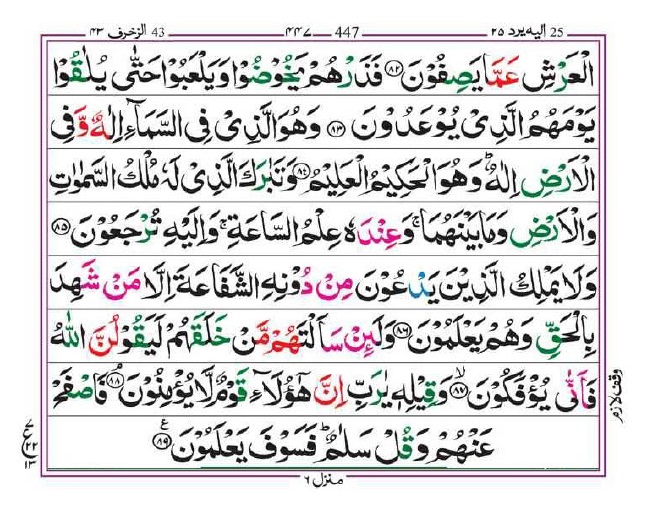 25 اليه يرد ٢٥ 447 ٤٤٧ 43 الزخرف ٤٣
الْعَرْشِ عَمَّا يَصِفُوْنَ ﴿۸۲﴾ فَذَرْهُمْ يَخُوْضُوْا وَيَلْعَبُوْا حَتّٰى يُلٰقُوْا
يَوْمَهُمُ الَّذِىْ يُوْعَدُوْنَ ﴿۸۳﴾ وَهُوَ الَّذِىْ فِى السَّمَآءِ اِلٰهٌ وَّفِى
الْاَرْضِ اِلٰهٌ ؕ وَهُوَ الْحَكِيْمُ الْعَلِيْمُ ﴿۸۴﴾ وَتَبٰرَكَ الَّذِىْ لَهٗ مُلْكُ السَّمٰوٰتِ
وَالْاَرْضِ وَمَا بَيْنَهُمَا ۚ وَعِنْدَهٗ عِلْمُ السَّاعَةِ ۚ وَاِلَيْهِ تُرْجَعُوْنَ ﴿۸۵﴾
وَلَا يَمْلِكُ الَّذِيْنَ يَدْعُوْنَ مِنْ دُوْنِهِ الشَّفَاعَةَ اِلَّا مَنْ شَهِدَ
بِالْحَقِّ وَهُمْ يَعْلَمُوْنَ ﴿۸۶﴾ وَلَئِنْ سَاَلْتَهُمْ مَّنْ خَلَقَهُمْ لَيَقُوْلُنَّ اللّٰهُ
فَاَنّٰى يُؤْفَكُوْنَ ۙ﴿۸۷﴾ وَقِيْلِهٖ يٰرَبِّ اِنَّ هٰٓؤُلَآءِ قَوْمٌ لَّا يُؤْمِنُوْنَ ۘ﴿۸۸﴾ فَاصْفَحْ
عَنْهُمْ وَقُلْ سَلٰمٌ ؕ فَسَوْفَ يَعْلَمُوْنَ ﴿۸۹﴾ ع
وقف لازم
٧
٢٢
١٣
منزل ٦